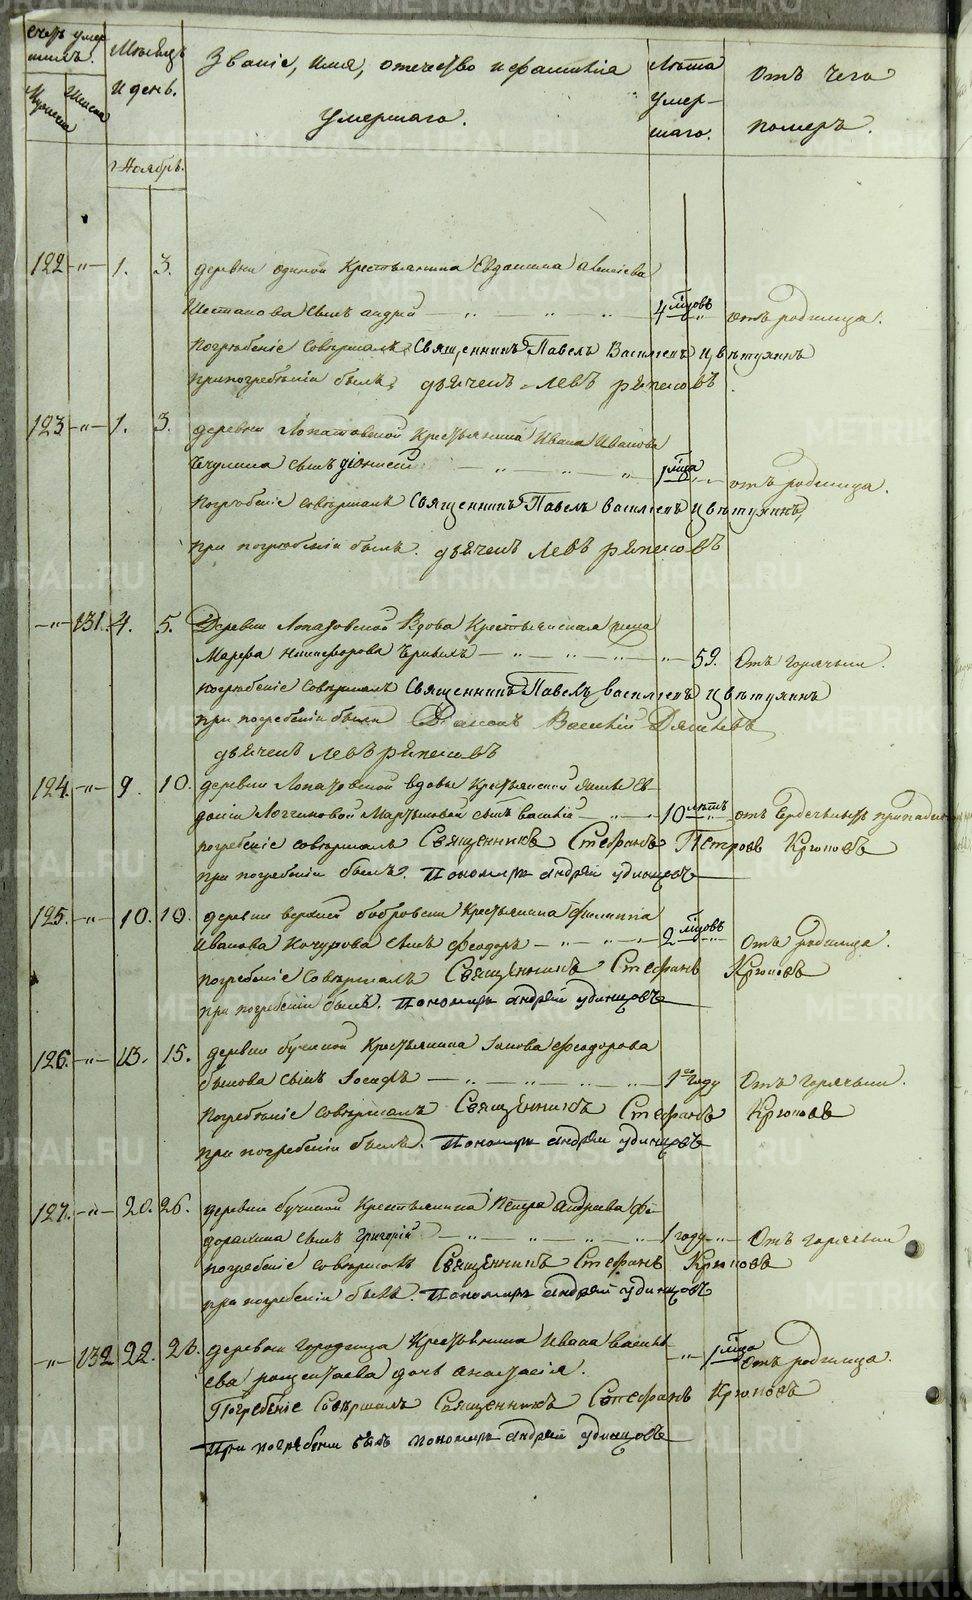 METRIKI.GASO-URAL.RU
Счетъ умер
шихъ.
Мужеска
Женска
Мѣсяцъ
и день.
Ноябрь.
Званіе, имя, отечество и фамилія
умершаго.
Лѣта
умер-
шаго.
Отъ чего
померъ.
122 -"- 1. 3. деревни Крестьянина Евдокима
сынъ андрей 4 м҃цовъ отъ родимца.
Погребеніе совершалъ Священникъ Павелъ Василіевъ Цвѣтухинъ
при погребеніи былъ дьячекъ левъ
123 -"- 1. 3. деревни Лопатовской Крестьянина Ивана Иванова
сынъ діонисей 1 м҃ца отъ родимца.
Погребеніе совершалъ Священникъ Павелъ василіевъ Цвѣтухинъ,
при погребеніи былъ. дьячекъ левъ
-"- 131. 4. 5. Деревни Лопатовской Вдова Крестьянская жена
Марфа Никифорова " 59. Отъ горячки.
погребеніе совершалъ Священникъ Павелъ василіевъ Цвѣтухинъ
при погребеніи были Діаконъ Василій
дьячекъ левъ
124. -"- 9. 10. деревни Лопатовской вдовы Крестьянской жены Ев-
докіи сынъ василій 10 лѣтъ отъ
погребеніе совершалъ Священникъ Стефанъ Петровъ Крюковъ
при погребеніи былъ. Пономарь андрей удинцовъ
125. -"- 10. 10. деревни верхней бобровки Крестьянина Филиппа
Иванова Кочурова сынъ феодоръ 2 м҃цовъ Отъ родимца.
погребеніе совершалъ Священникъ Стефанъ Крюковъ
при погребеніи былъ. Пономарь андрей удинцовъ
126. -"- 13. 15. деревни бучиной Крестьянина феодорова
быкова сынъ Іосифъ 1го году Отъ горячки.
погребеніе совершалъ Священникъ Стефанъ Крюковъ
при погребеніи былъ. Пономарь андрей удинцовъ
127. -"- 20. 26. деревни бучиной Крестьянина Петра андреева
сынъ Григорій 1 году Отъ горячки
погребеніе совершалъ Священникъ Стефанъ Крюковъ
при погребеніи былъ. Пономарь андрей удинцовъ
-"- 132 22. деревни Крестьянина Ивана василь-
ева дочь анастасія. 1 м҃ца отъ родимца.
Погребеніе Совершалъ Священникъ Стефанъ Крюковъ
При погребеніи былъ пономарь андрей удинцовъ